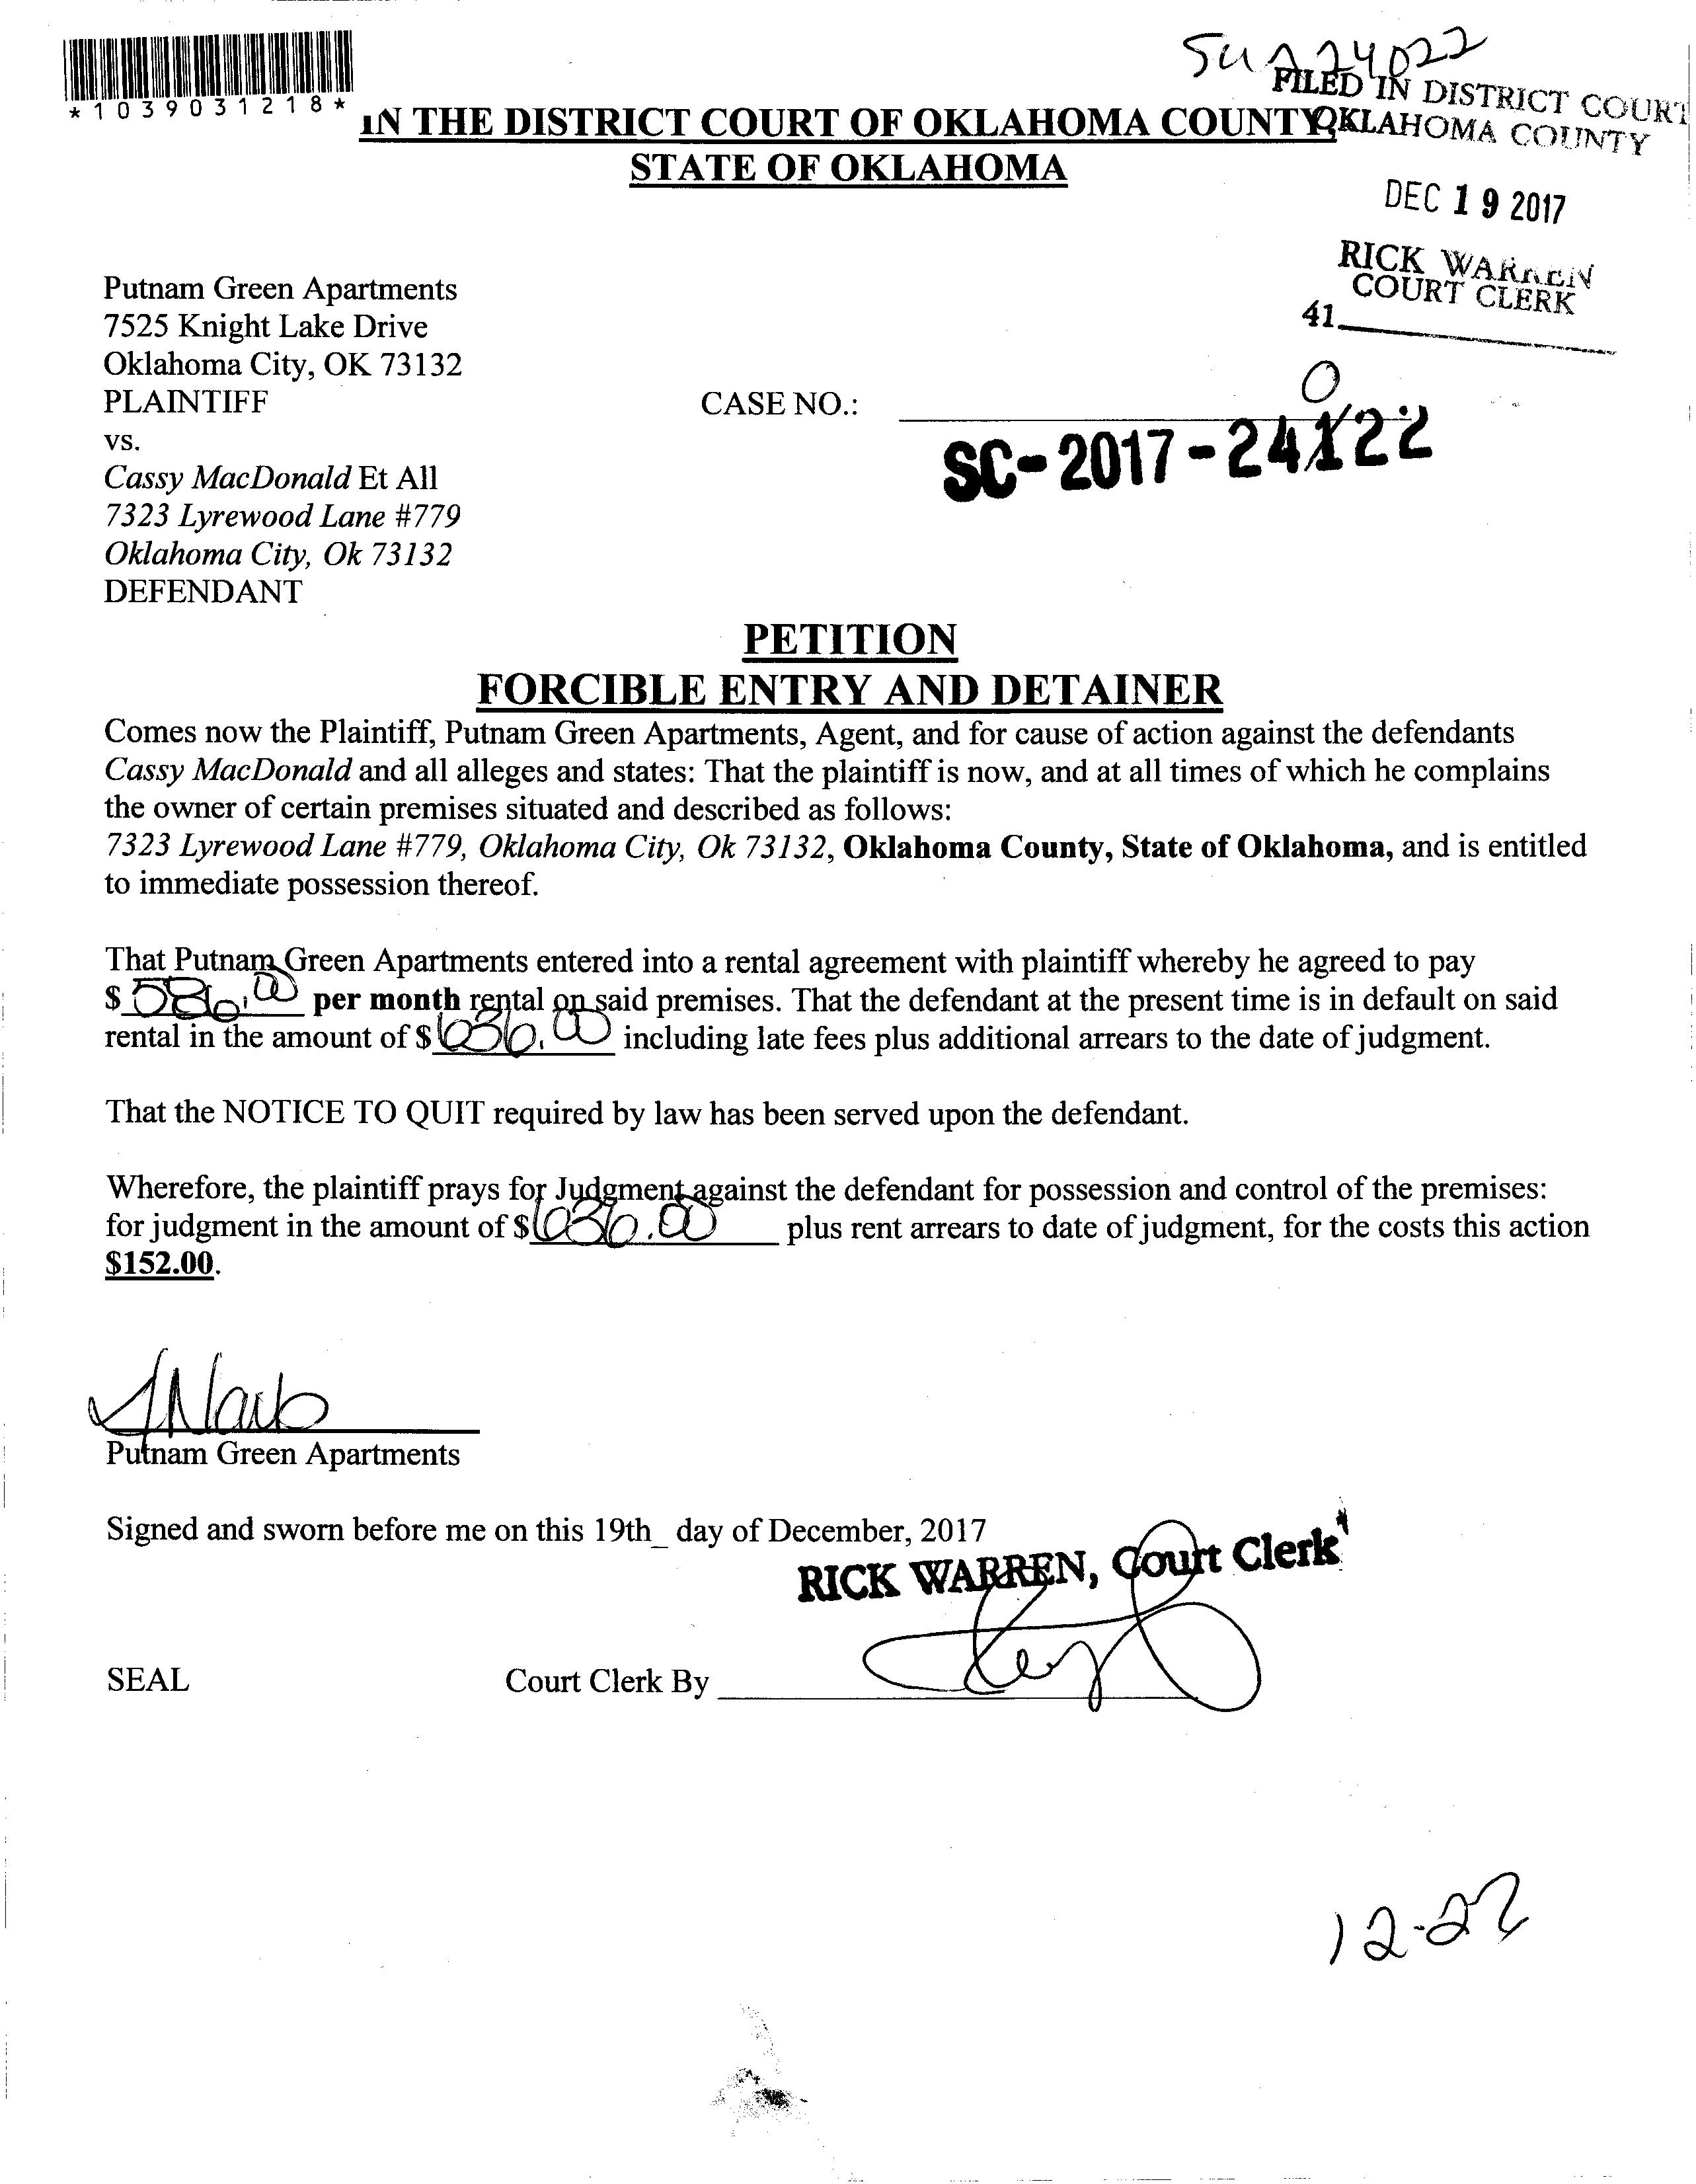 SC 17 24022
*1039031218*
FILED IN DISTRICT COURT
OKLAHOMA COUNTY
IN THE DISTRICT COURT OF OKLAHOMA COUNTY
STATE OF OKLAHOMA
DEC 19 2017
RICK WARREN
COURT CLERK
41
Putnam Green Apartments
7525 Knight Lake Drive
Oklahoma City, OK 73132
PLAINTIFF
CASE NO.:
0
SC-2017-24122
vs.
Cassy MacDonald Et All
7323 Lyrewood Lane #779
Oklahoma City, Ok 73132
DEFENDANT
PETITION
FORCIBLE ENTRY AND DETAINER
Comes now the Plaintiff, Putnam Green Apartments, Agent, and for cause of action against the defendants
Cassy MacDonald and all alleges and states: That the plaintiff is now, and at all times of which he complains
the owner of certain premises situated and described as follows:
7323 Lyrewood Lane #779, Oklahoma City, Ok 73132, Oklahoma County, State of Oklahoma, and is entitled
to immediate possession thereof.
That Putnam Green Apartments entered into a rental agreement with plaintiff whereby he agreed to pay
$ 586.00 per month rental on said premises. That the defendant at the present time is in default on said
rental in the amount of $ 636.00 including late fees plus additional arrears to the date of judgment.
That the NOTICE TO QUIT required by law has been served upon the defendant.
Wherefore, the plaintiff prays for Judgment against the defendant for possession and control of the premises:
for judgment in the amount of $ 636.00 plus rent arrears to date of judgment, for the costs this action
$152.00.
Putnam Green Apartments
Signed and sworn before me on this 19th_ day of December, 2017
RICK WARREN, Court Clerk
SEAL
Court Clerk By
12-22